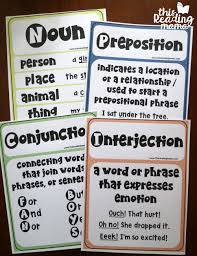 this
Reading
mama
Noun
person a
place the
animal a
thing my
Preposition
indicates a location
or a relationship /
used to start a
prepositional phrase
I sat under the tree.
Conjunction
connecting words
that join words,
phrases, or
For
And
Nor
Interjection
a word or phrase
that expresses
emotion
Ouch! That hurt!
Oh no! She dropped it.
Eeek! I'm so excited!